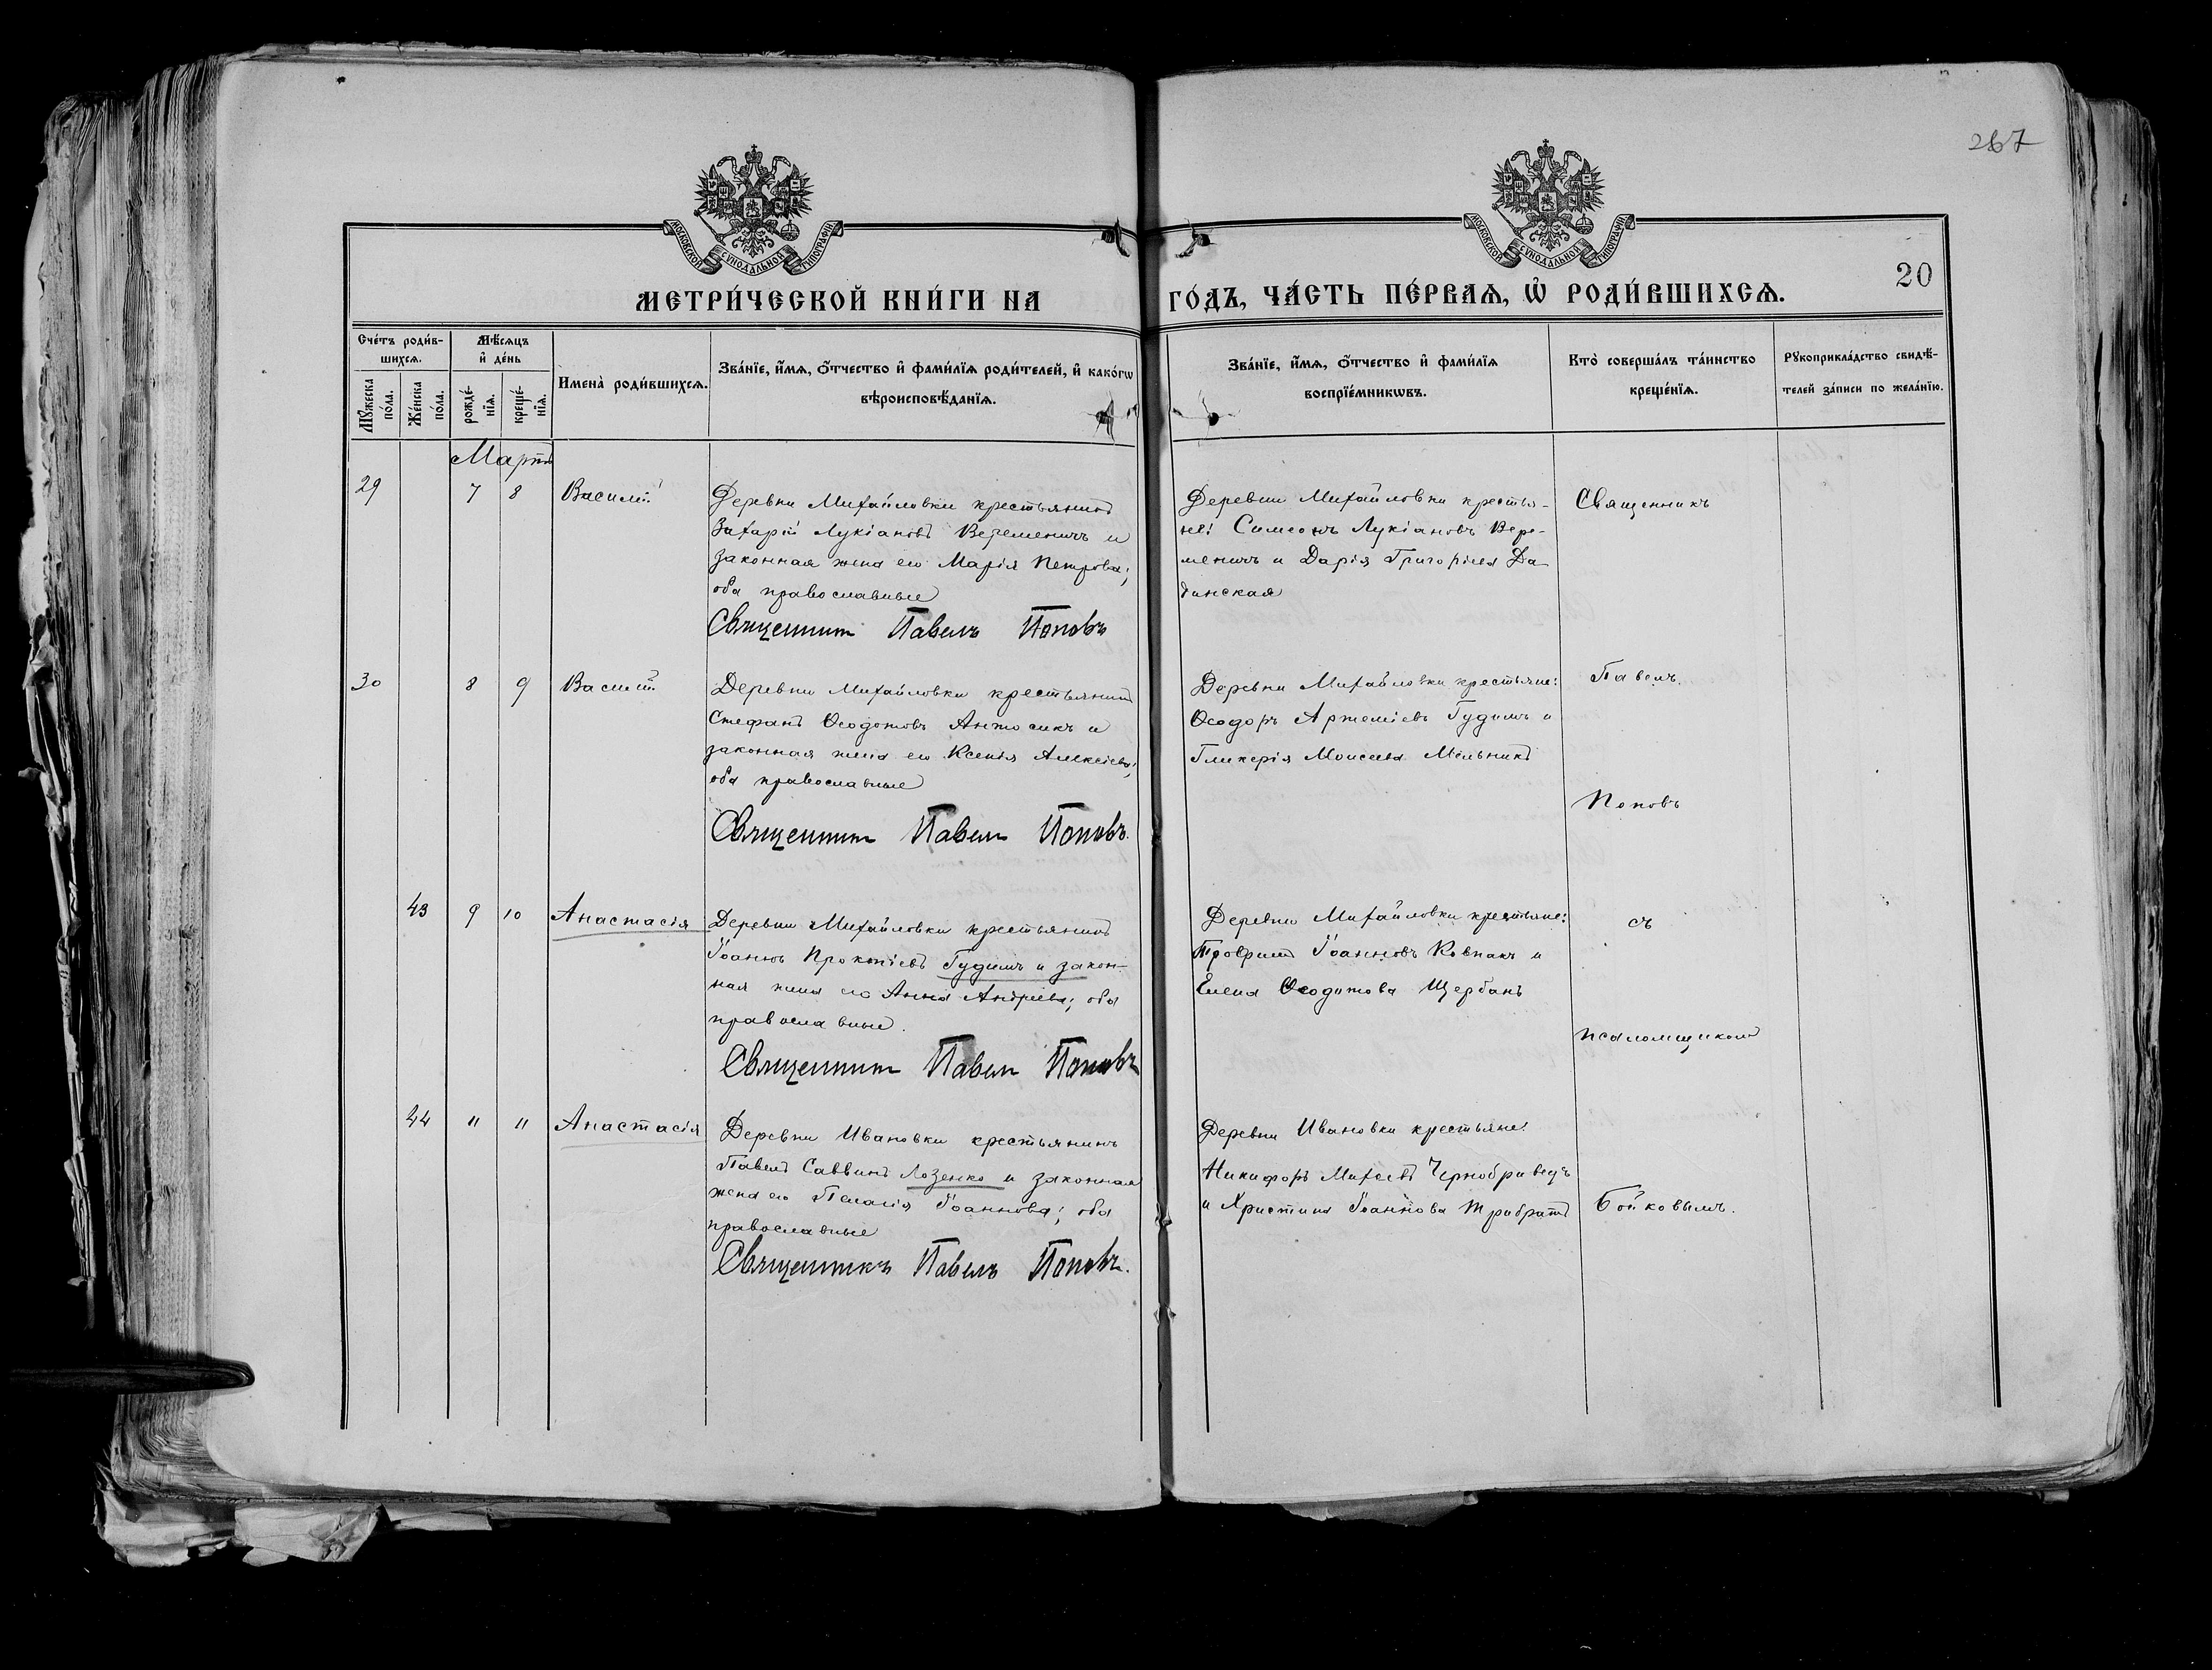 267
МОСКОВСКОЙ СѴНОДАЛЬНОЙ ТИПОГРАФІИ
МОСКОВСКОЙ СѴНОДАЛЬНОЙ ТИПОГРАФІИ
МЕТРИ́ЧЕСКОЙ КНИ́ГИ НА
ГО́ДЪ, ЧА́СТЬ ПЕ́РВАѦ, Ѡ҆ РОДИ́ВШИХСѦ.
20
Сче́тъ роди́в-
шихсѧ.
Мꙋ́жеска
по́ла.
Же́нска
по́ла.
Мѣ́сѧцъ
и҆ де́нь
рожде́-
нїѧ.
креще́-
нїѧ.
Имена̀ роди́вшихсѧ.
Зва́нїе, и҆́мѧ, о҆́тчество и҆ фами́лїѧ роди́телей, и҆ како́гѡ
вѣроисповѣ́данїѧ.
Зва́нїе, и҆́мѧ, о҆́тчество и҆ фами́лїѧ
воспрїе́мникѡвъ.
Кто̀ соверша́лъ та́инство
креще́нїѧ.
Рꙋкоприкла́дство свидѣ́-
телей за́писи по жела́нїю.
Мартъ
29
7 8
Василій
Деревни Михайловки крестьянинъ
Захарій Лукіановъ Веременичъ и
законная жена его Марія Петрова;
оба православные
Священникъ Павелъ Поповъ
Деревни Михайловки крестья-
не: Симеонъ Лукіановъ Вере-
меничъ и Дарія Григоріева Да-
динская
Священникъ
30
8 9
Василій
Деревни Михайловки крестьянинъ
Стефанъ Ѳеодотовъ Антосикъ и
законная жена его Ксенія Алексіева;
оба православные
Священникъ Павелъ Поповъ.
Деревни Михайловки крестьяне:
Ѳеодоръ Артеміевъ Гудимъ и
Гликерія Моисеева Мельникъ
Павелъ
Поповъ
43
9 10
Анастасія
Деревни Михайловки крестьянинъ
Іоаннъ Прокопіевъ Гудимъ и закон-
ная жена его Анна Андреева; оба
православные.
Священникъ Павелъ Поповъ
Деревни Михайловки крестьяне:
Трофимъ Іоанновъ Ковпакъ и
Елена Ѳеодотова Щербань
съ
псаломщикомъ
44
11 11
Анастасія
Деревни Ивановки крестьянинъ
Павелъ Саввинъ Лозенко и законная
жена его Пелагія Іоаннова; оба
православные
Священникъ Павелъ Поповъ.
Деревни Ивановки крестьяне:
Никифоръ Михеевъ Чернобривецъ
и Христина Іоаннова Трибратъ
Бойковымъ.